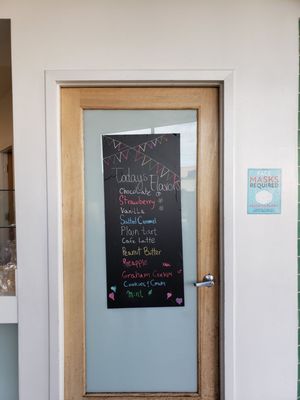 Todays Flavors
Chocolate
Strawberry
Vanilla
Salted Caramel
Plain tart
Cafe Latte
Peanut Butter
Pineapple
Graham Cracker
Cookies & Cream
Mint
FACE
MASKS
REQUIRED